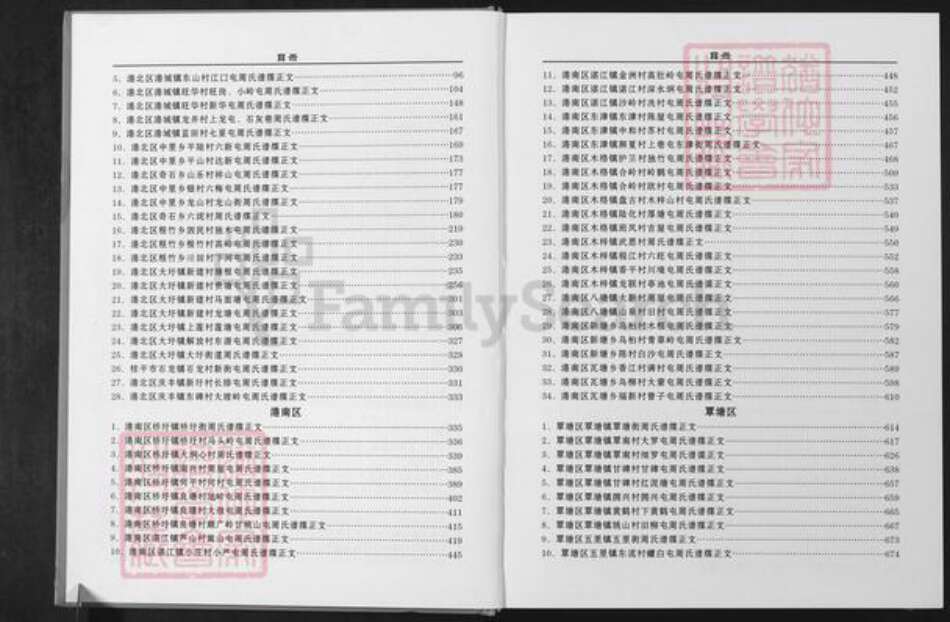 目录
5、港北区港城镇东山村江口屯周氏谱牒正文 96
6、港北区港城镇旺华村旺岗、小岭屯周氏谱牒正文 104
7、港北区港城镇旺华村新华屯周氏谱牒正文 148
8、港北区港城镇龙井村上龙屯、石灰巷周氏谱牒正文 161
9、港北区港城镇蓝田村七里屯周氏谱牒正文 167
10、港北区中里乡平陆村六新屯周氏谱牒正文 169
11、港北区中里乡平山村达新屯周氏谱牒正文 173
12、港北区奇石乡山茶村祥山屯周氏谱牒正文 177
13、港北区中里乡塘村六梅屯周氏谱牒正文 177
14、港北区中里乡龙山村龙山街周氏谱牒正文 179
15、港北区奇石乡六泷村周氏谱牒正文 180
16、港北区根竹乡泗民村独木屯周氏谱牒正文 219
17、港北区根竹乡根竹村高岭屯周氏谱牒正文 230
18、港北区根竹乡 村下河屯周氏谱牒正文 233
19、港北区大圩镇新建村塘根屯周氏谱牒正文 235
20、港北区大圩镇新建村贵塘屯周氏谱牒正文 256
21、港北区大圩镇新建村马面塘屯周氏谱牒正文 301
22、港北区大圩镇新建村龙塘屯周氏谱牒正文 303
23、港北区大圩镇上莲村莲塘屯周氏谱牒正文 306
24、港北区大圩镇解放村东汤屯周氏谱牒正文 327
25、港北区大圩镇大圩街道周氏谱牒正文 328
26、桂平市石龙镇石龙村新街屯周氏谱牒正文 330
27、港北区庆丰镇新圩村长排屯周氏谱牒正文 331
28、港北区庆丰镇东碑村大坡岭屯周氏谱牒正文 333
港南区
1、港南区桥圩镇桥圩街周氏谱牒正文 335
2、港南区桥圩镇桥圩村马头岭屯周氏谱牒正文 336
3、港南区桥圩镇大洞心村周氏谱牒正文 339
4、港南区桥圩镇南兴村周屋屯周氏谱牒正文 385
5、港南区桥圩镇何平村何村屯周氏谱牒正文 389
6、港南区桥圩镇良塘村旭岭屯周氏谱牒正文 402
7、港南区桥圩镇良塘村大垌屯周氏谱牒正文 411
8、港南区桥圩镇良塘村顺广岭甘桃山屯周氏谱牒正文 415
9、港南区湛江镇 山村 山屯周氏谱牒正文 419
10、港南区湛江镇小庄村小产屯周氏谱牒正文 445
目录
11、港南区湛江镇金洲村高社岭屯周氏谱牒正文 448
12、港南区湛江镇湛江村深水垌屯周氏谱牒正文 452
13、港南区湛江镇沙岭村冼村屯周氏谱牒正文 455
14、港南区东津镇东津村陈屋屯周氏谱牒正文 456
15、港南区东津镇中和村苏村屯周氏谱牒正文 457
16、港南区东津镇厢里村上巷屯东津街周氏谱牒正文 467
17、港南区木格镇护兰村独竹屯周氏谱牒正文 468
18、港南区木格镇合岭村岭鹤屯周氏谱牒正文 509
19、港南区木格镇合岭村欧村屯周氏谱牒正文 533
20、港南区木格镇盘古村木梓山村屯周氏谱牒正文 537
21、港南区木格镇陆化村厚塘屯周氏谱牒正文 540
22、港南区木梓镇班凤村吉屋屯周氏谱牒正文 549
23、港南区木梓镇武思村周氏谱牒正文 550
24、港南区木梓镇根江村六旺屯周氏谱牒正文 552
25、港南区木梓镇普平村川埇屯周氏谱牒正文 558
26、港南区木梓镇龙联村亭池屯周氏谱牒正文 560
27、港南区八塘镇大新村周屋屯周氏谱牒正文 566
28、港南区八塘镇山垌村旧村屯周氏谱牒正文 577
29、港南区新塘乡岛柏村木根屯周氏谱牒正文 579
30、港南区新塘乡岛柏村青草岭屯周氏谱牒正文 582
31、港南区新塘乡陈村白沙屯周氏谱牒正文 587
32、港南区瓦塘乡香江村满村屯周氏谱牒正文 589
33、港南区瓦塘乡乌柳村大窝屯周氏谱牒正文 598
34、港南区瓦塘乡福新村普子屯周氏谱牒正文 610
覃塘区
1、覃塘区覃塘镇覃塘街周氏谱牒正文 614
2、覃塘区覃塘镇覃南村大罗屯周氏谱牒正文 617
3、覃塘区覃塘镇覃南村细罗屯周氏谱牒正文 626
4、覃塘区覃塘镇甘碑村甘碑屯周氏谱牒正文 638
5、覃塘区覃塘镇甘碑村红泥塘屯周氏谱牒正文 657
6、覃塘区覃塘镇拥兴村拥兴屯周氏谱牒正文 659
7、覃塘区覃塘镇黄鹤村下黄鹤屯周氏谱牒正文 665
8、覃塘区覃塘镇姚山村旧柳屯周氏谱牒正文 667
9、覃塘区五里镇五里街周氏谱牒正文 673
10、覃塘区五里镇东流村罐白屯周氏谱牒正文 674
FamilySearch